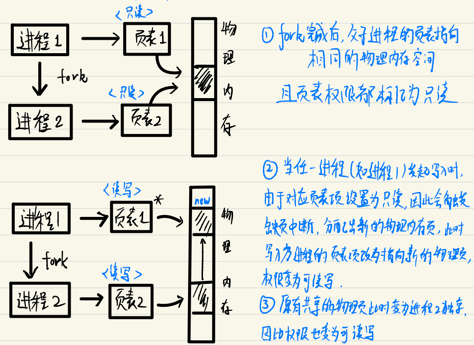 <只读>
进程1
页表1
fork
<只读>
进程2
页表2
物
理
内
存
① fork完成后,父子进程的页表指向
相同的物理内存空间
且页表权限都标记为只读
<读写>
new
进程1
页表1
*
fork
<读写>
进程2
页表2
物
理
内
存
② 当任一进程(如进程1)发起写入时,
由于对应页表项设置为只读,因此会触发
缺页中断,分配出新的物理内存页,此时
写入方进程的页表项改为指向新的物理页,
权限变为可读写.
③ 原有共享的物理页此时变为进程2独享,
因此权限也变为可读写